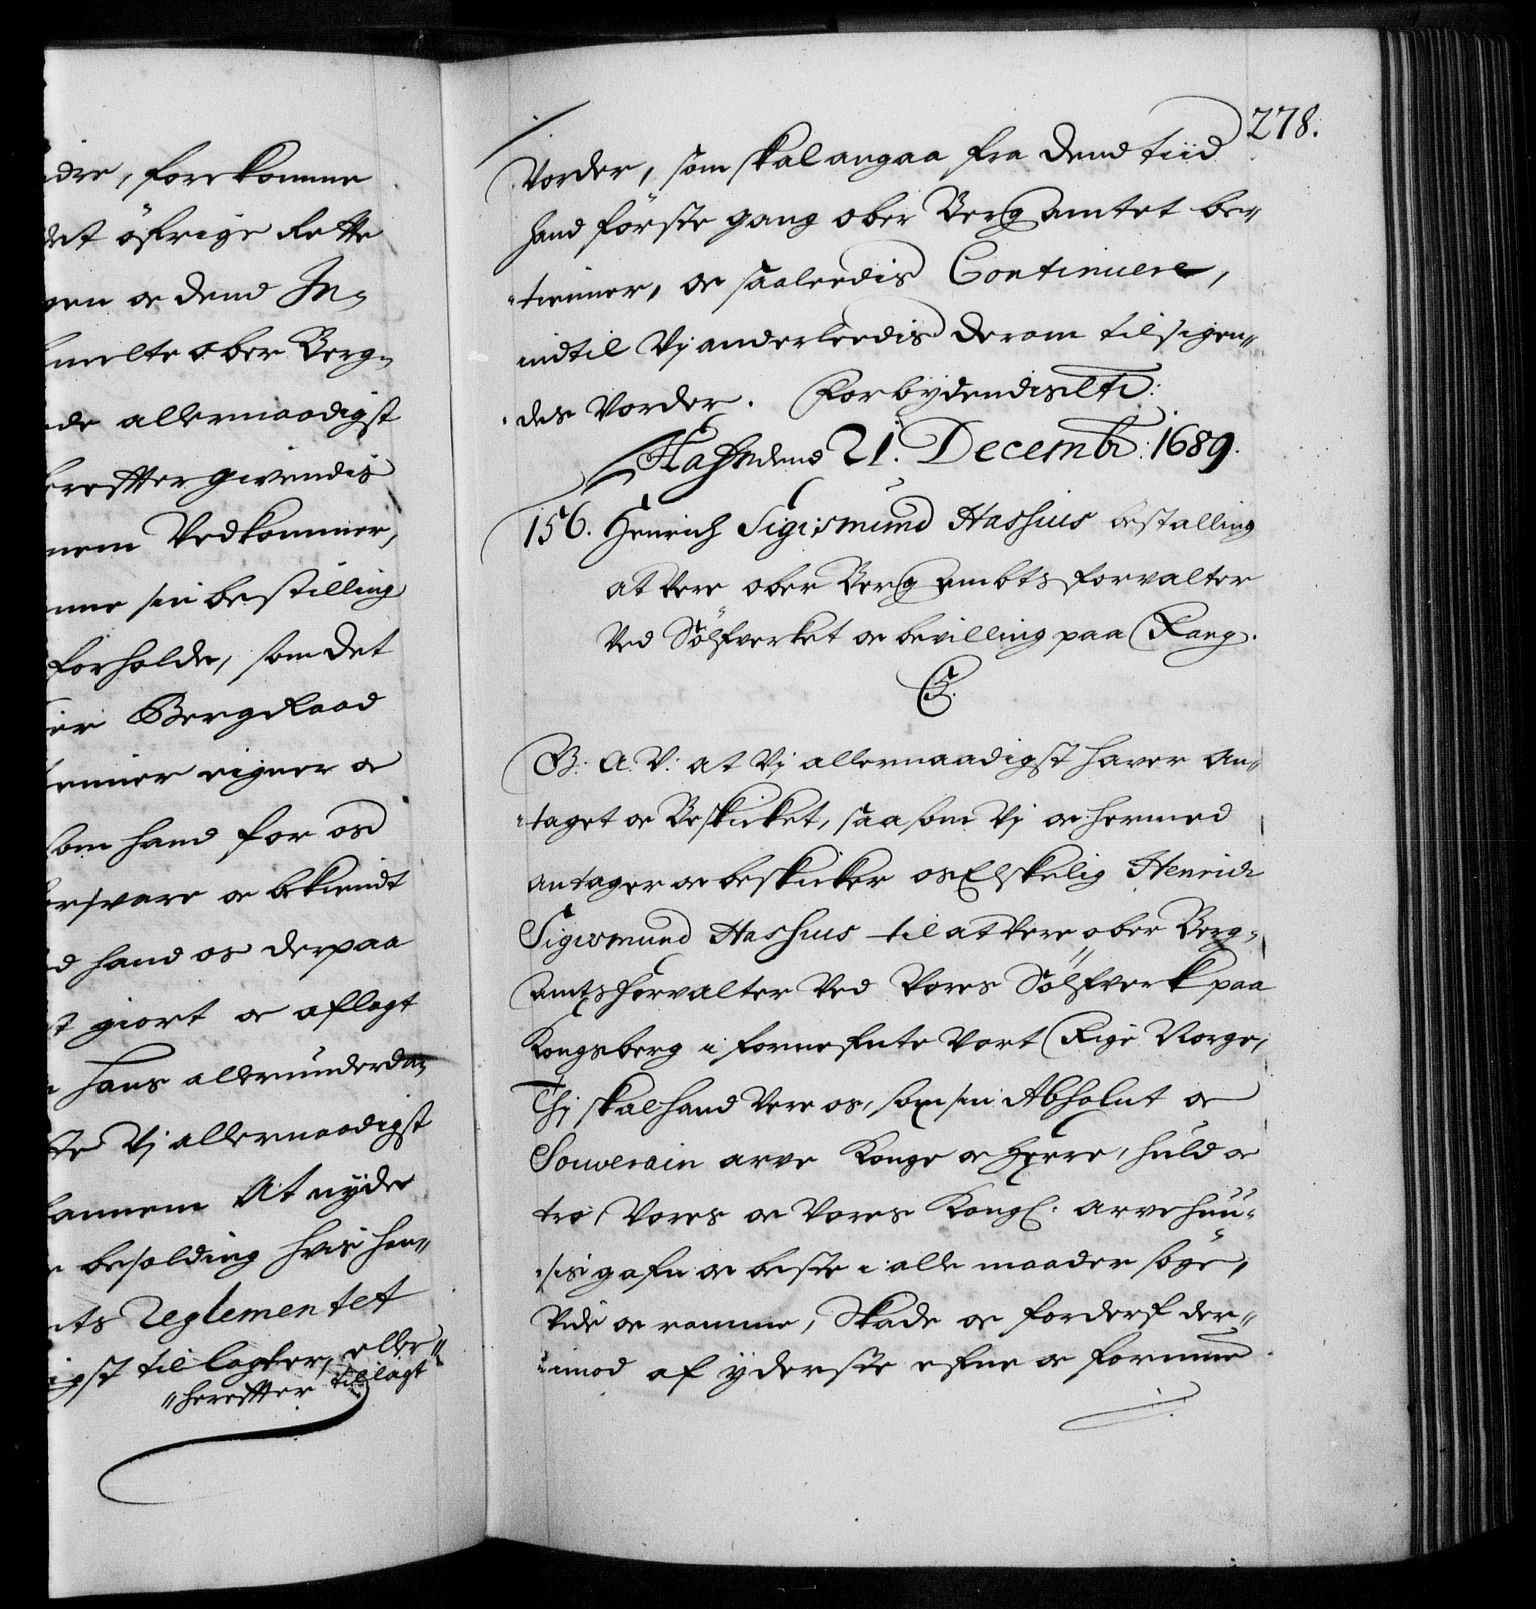 dre, forekomme
det öfrige Rette
gen oc dend In-
melte ober Berg-
de allernaadigst
hereffter givendis
nem Vedkommer,
nne sin bestilling
forholde, som det
er BergRaad
tienner eigner oc
som hand for os
forsvare oc bekiendt
d hand os derpaa
giort oc aflagt
hans allerunderda-
te Vj allernaadigst
hannem At nyde
besolding hvis han-
nts Reglementet
igst tillagker, eller
hereffter tillagt
278.
Vorder, som skal angaa fra dend tiid
hand förste gang ober Berg amtet be-
tienner, oc saaleedis Continuere,
indtil Vj anderleedis derom tilsigen-
des Vorder. Forbydendis etc:
Hafn dend 21. Decembr: 1689.
156. Henrich Sigismund Hasshius bestalling
at Vere ober Berg Ambts forvalter
Ved Sölfverket oc bevilling paa Rang.
C5.
G: A: V: at Vj allernaadigst haver An-
taget oc Beskicket, saasom Vj oc hermed
antager oc beskicker os Elskelig Henrich
Sigismund Hasshius til at Vere ober Berg-
Amts forvalter Ved Vores Sölfverk paa
Kongsberg i fornefnte Vort Rige Norge,
Thj skal hand Vere os, som sin Absolut oc
Souverain arve Konge oc Herre, huld oc
tro, Vores oc Vores Kongl: arvehuu-
sis gafn oc beste i alle maader söge,
Vide oc ramme, Skade oc forderf der-
imod af yderste efne oc formue